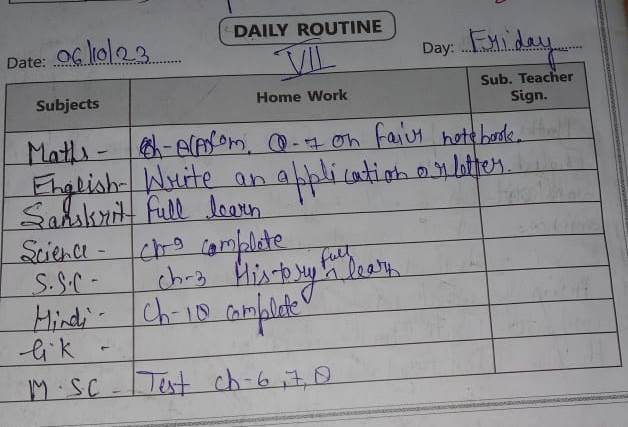 DAILY ROUTINE
Date: 06/10/23 VII Day: Friday
Subjects Home Work Sub. Teacher Sign.
Maths - Ch- Com. Q-7 on fair notebook.
English- Write an application or letter.
Sanskrit- full learn
Science - ch-9 complete
S.S.C - ch-3 History full learn
Hindi - Ch-10 complete
G.K -
M.SC - Test ch-6, 7, 8